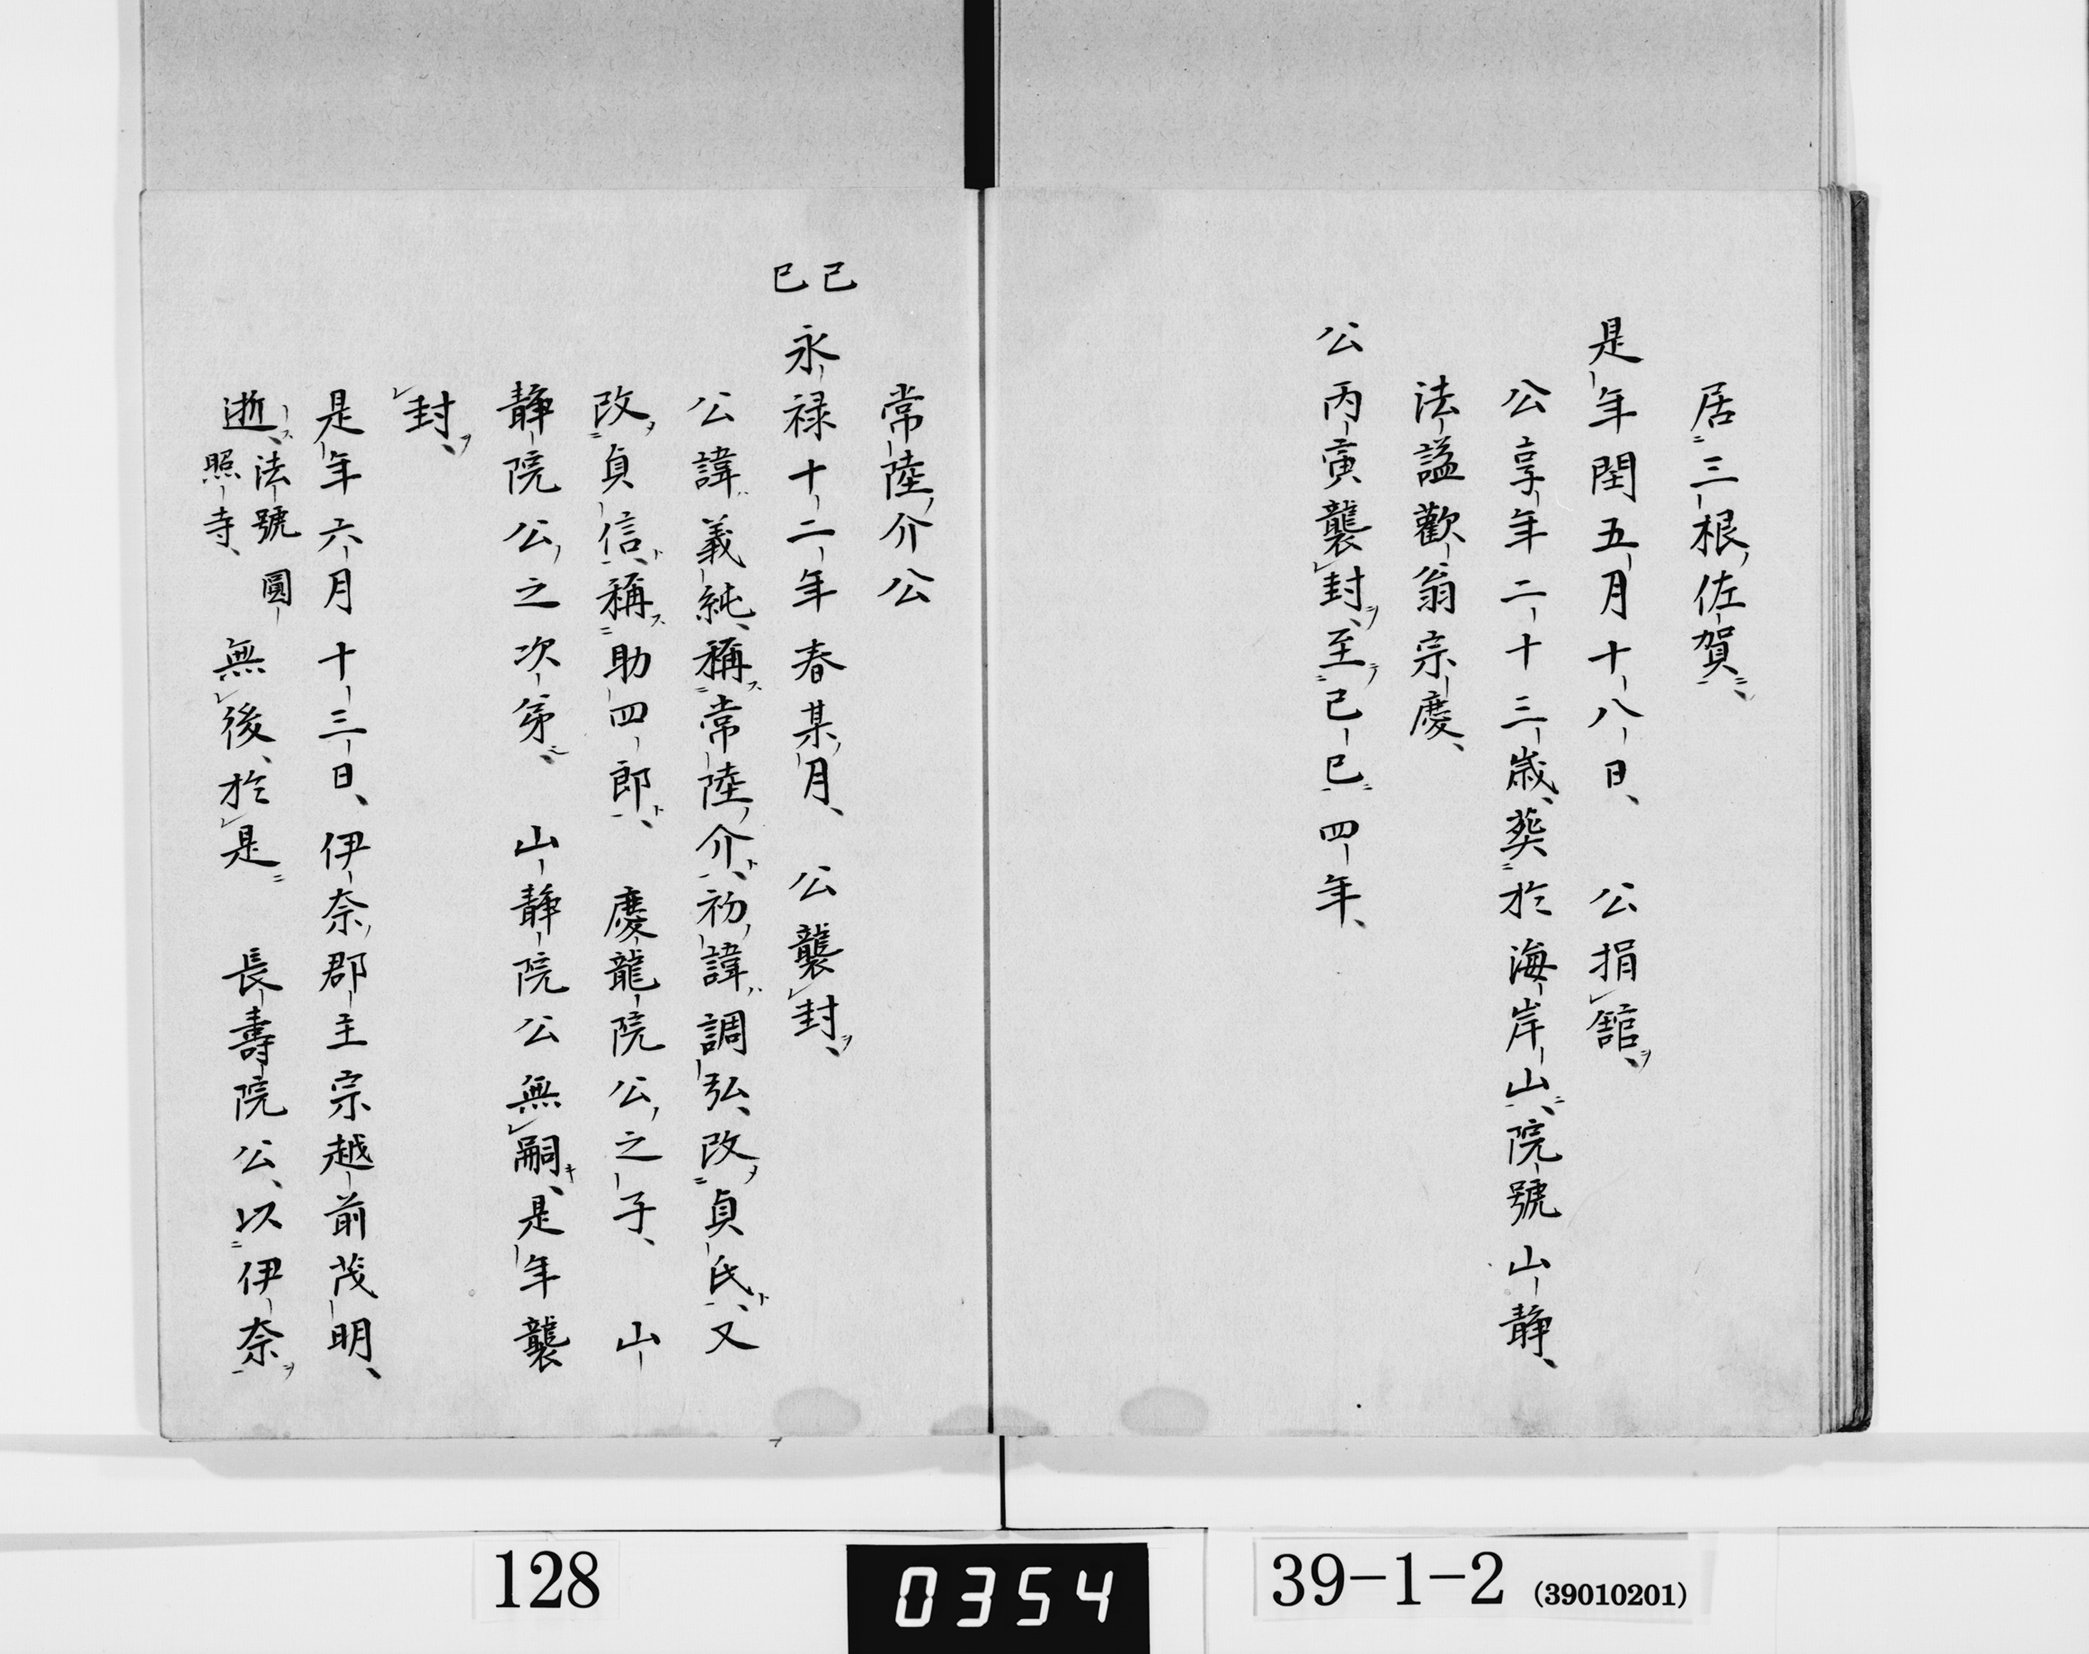 居三根佐賀、
是年閏五月十八日、公捐舘、
公享年二十三歳、葬於海岸山、院號山静、
法謚歡翁宗慶、
公丙寅襲封、至己巳四年、
常陸介公
己巳
永禄十二年春某月、公襲封、
公諱義純、稱常陸介、初諱調弘、改貞氏、又
改貞信、稱助四郎、慶龍院公之子、山
静院公之次弟、山静院公無嗣、是年襲
封、
是年六月十三日、伊奈郡主宗越前茂明、
逝、法號圓
照寺、無後、於是長壽院公、以伊奈
128
0354
39-1-2 (39010201)